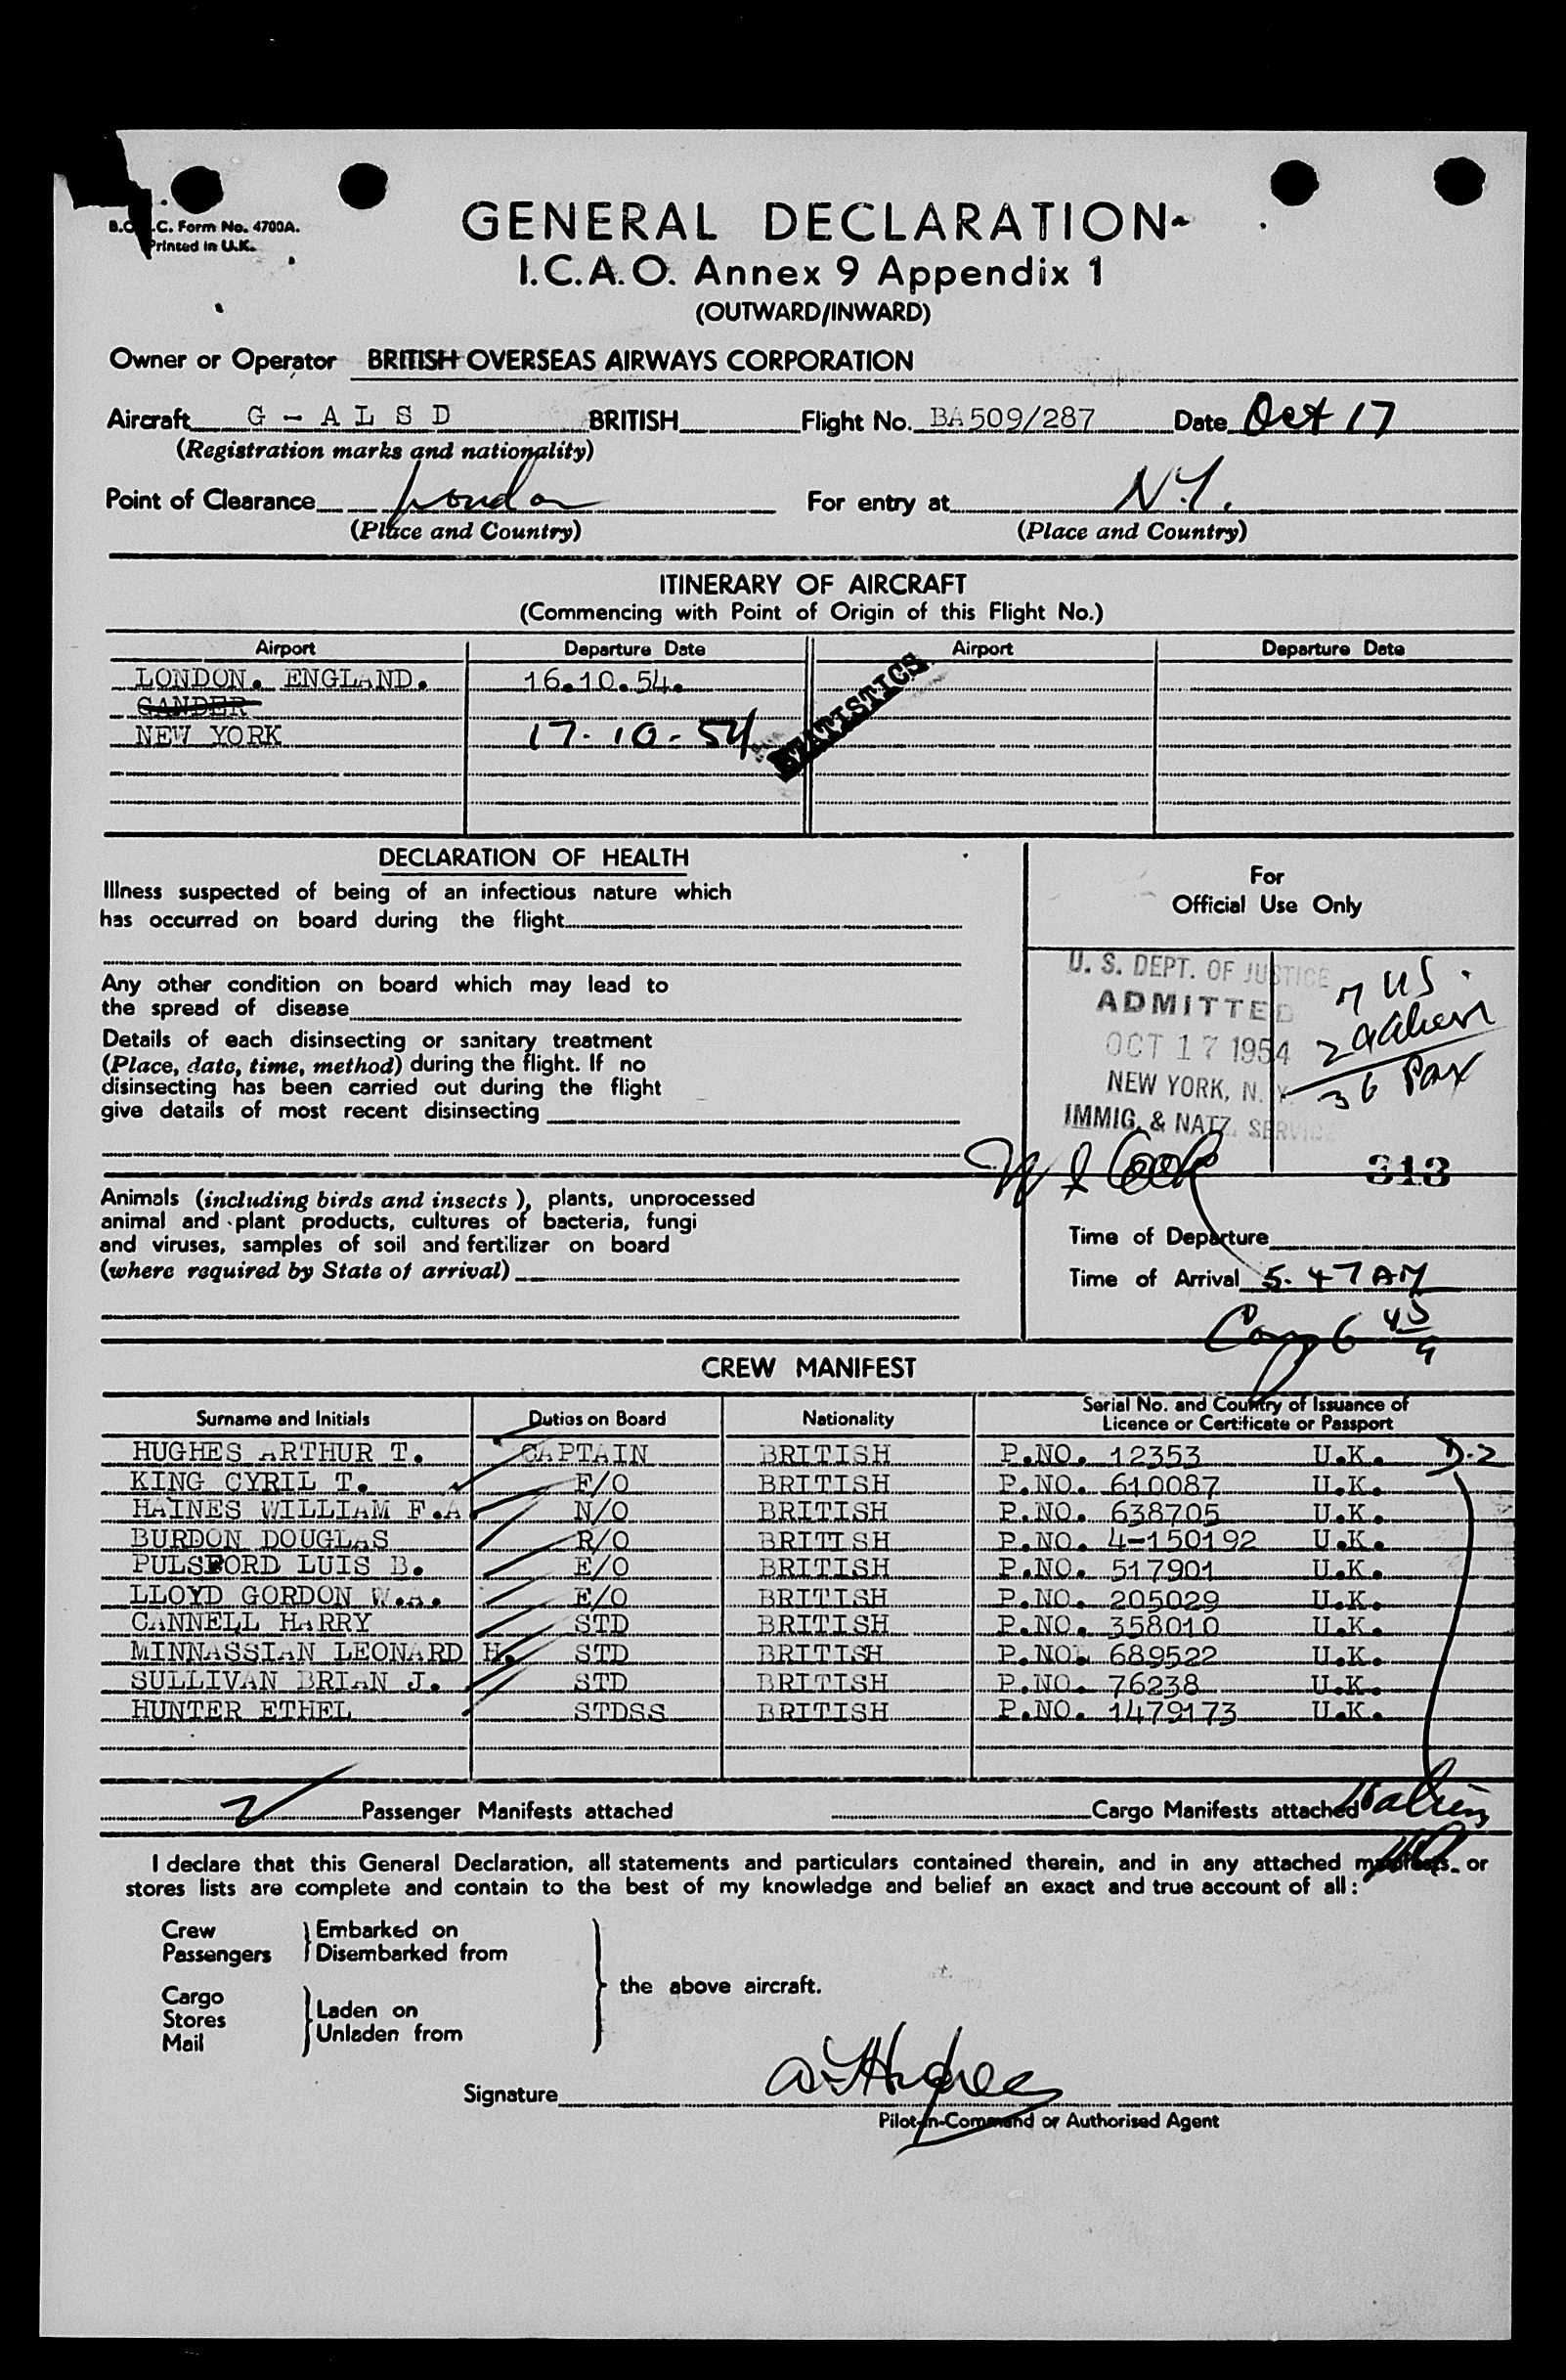 B.O.A.C. Form No. 4700A.
Printed in U.K.
GENERAL DECLARATION
I.C.A.O. Annex 9 Appendix 1
(OUTWARD/INWARD)
Owner or Operator BRITISH OVERSEAS AIRWAYS CORPORATION
Aircraft G - A L S D BRITISH Flight No. BA509/287 Date Oct 17
(Registration marks and nationality)
Point of Clearance London For entry at N.Y.
(Place and Country) (Place and Country)
ITINERARY OF AIRCRAFT
(Commencing with Point of Origin of this Flight No.)
Airport Departure Date Airport Departure Date
LONDON. ENGLAND. 16.10.54.
GANDER
NEW YORK 17-10-54
STATISTICS
DECLARATION OF HEALTH
Illness suspected of being of an infectious nature which
has occurred on board during the flight
Any other condition on board which may lead to
the spread of disease
Details of each disinsecting or sanitary treatment
(Place, date, time, method) during the flight. If no
disinsecting has been carried out during the flight
give details of most recent disinsecting
Animals (including birds and insects), plants, unprocessed
animal and plant products, cultures of bacteria, fungi
and viruses, samples of soil and fertilizer on board
(where required by State of arrival)
For
Official Use Only
U. S. DEPT. OF JUSTICE
ADMITTED
OCT 17 1954
NEW YORK, N. Y.
IMMIG. & NATZ. SERVICE
7 US.
29 alien
36 Pax
313
Time of Departure
Time of Arrival 5.47 AM
CREW MANIFEST
Surname and Initials Duties on Board Nationality Serial No. and Country of Issuance of Licence or Certificate or Passport
HUGHES ARTHUR T. CAPTAIN BRITISH P.NO. 12353 U.K. D-2
KING CYRIL T. F/O BRITISH P.NO. 610087 U.K.
HAINES WILLIAM F.A N/O BRITISH P.NO. 638705 U.K.
BURDON DOUGLAS R/O BRITISH P.NO. 4-150192 U.K.
PULSFORD LUIS B. E/O BRITISH P.NO. 517901 U.K.
LLOYD GORDON W.A. E/O BRITISH P.NO. 205029 U.K.
CANNELL HARRY STD BRITISH P.NO. 358010 U.K.
MINNASSIAN LEONARD H. STD BRITISH P.NO. 689522 U.K.
SULLIVAN BRIAN J. STD BRITISH P.NO. 76238 U.K.
HUNTER ETHEL STDSS BRITISH P.NO. 1479173 U.K.
2 Passenger Manifests attached Cargo Manifests attached
I declare that this General Declaration, all statements and particulars contained therein, and in any attached manifests or
stores lists are complete and contain to the best of my knowledge and belief an exact and true account of all:
Crew Embarked on
Passengers Disembarked from
the above aircraft.
Cargo
Stores Laden on
Mail Unladen from
Signature A T Hughes
Pilot-in-Command or Authorised Agent